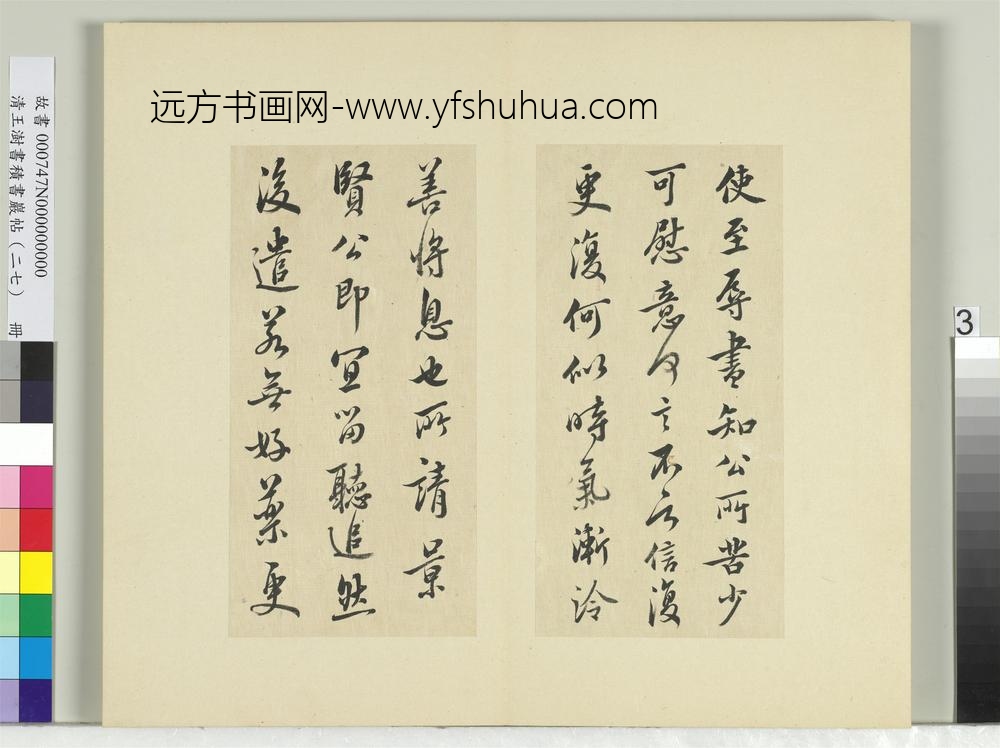 远方书画网-www.yfshuhua.com
使至辱書知公所苦少
可慰意何言不云信復
更復何似時氣漸冷
善將息也所請景
賢公即宜留聽追然
後遣若無好藥更
故書 000747N000000000
清王澍書積書巖帖（二七） 冊
3